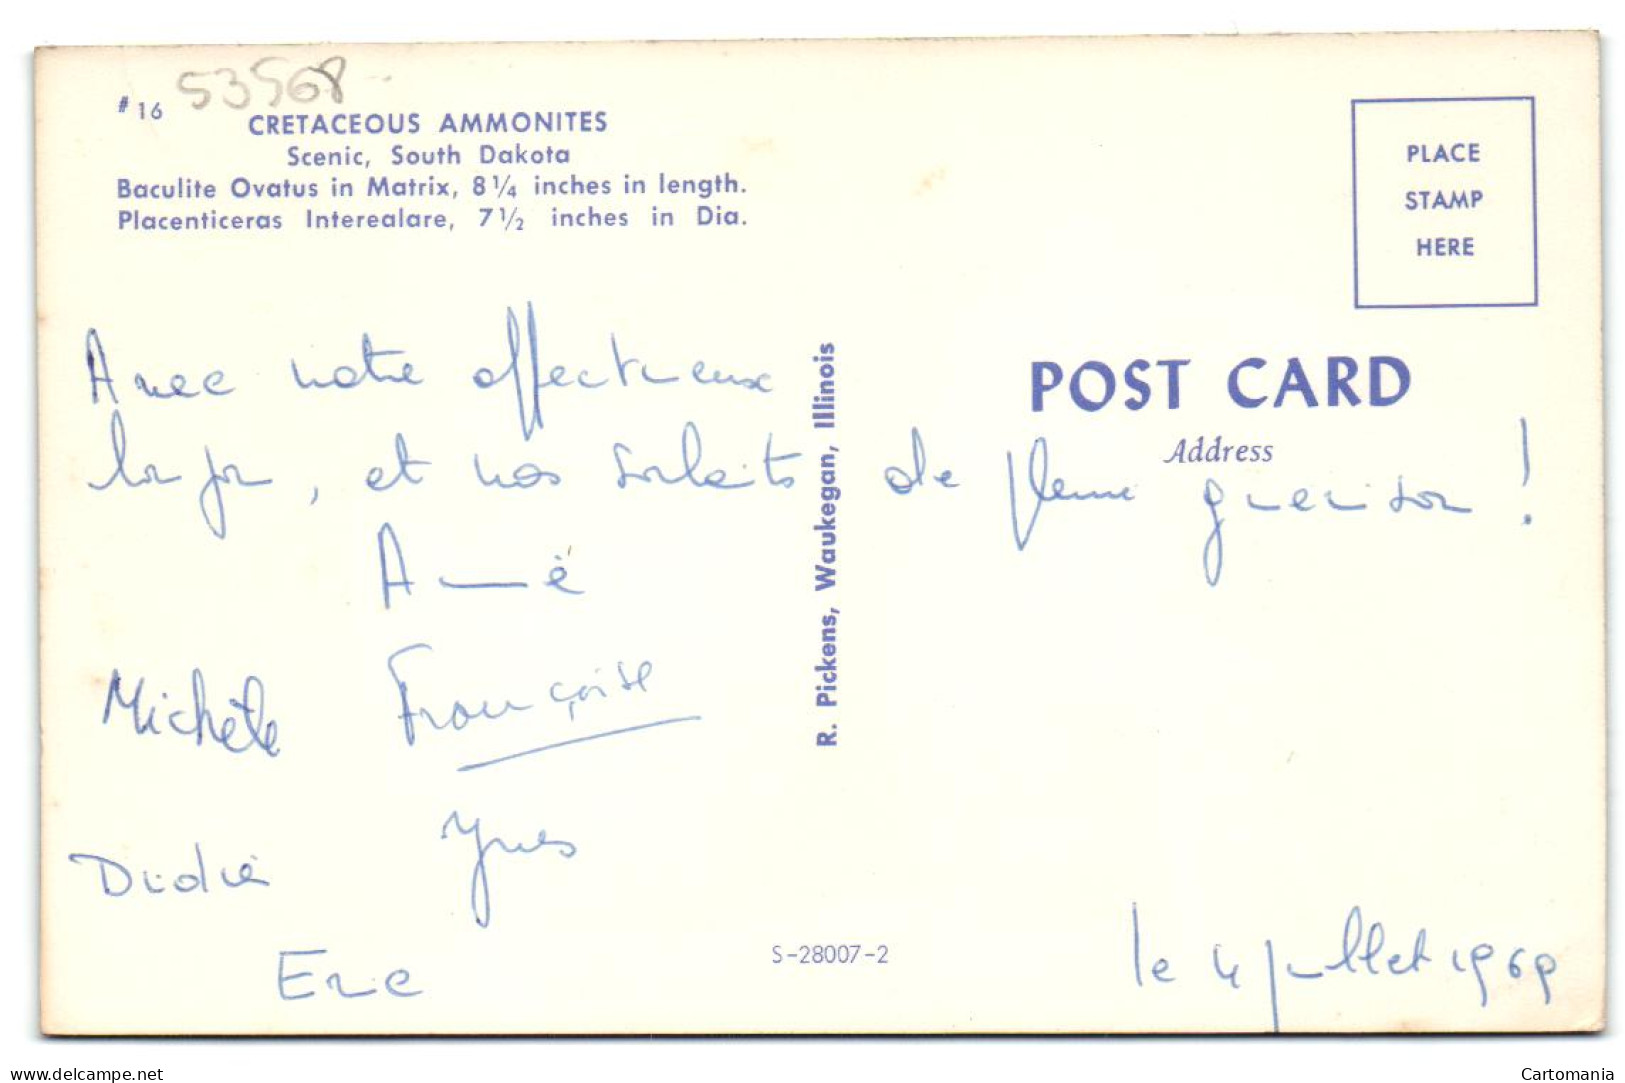 53568
# 16
CRETACEOUS AMMONITES
Scenic, South Dakota
Baculite Ovatus in Matrix, 8 1/4 inches in length.
Placenticeras Interealare, 7 1/2 inches in Dia.
PLACE
STAMP
HERE
POST CARD
Address
R. Pickens, Waukegan, Illinois
Avec notre affectueux
bonjour, et nos souhaits de pleine guérison !
Aimé
Michèle Françoise
Yves
Didier
Eric
S-28007-2
le 4 juillet 1969
www.delcampe.net
Cartomania